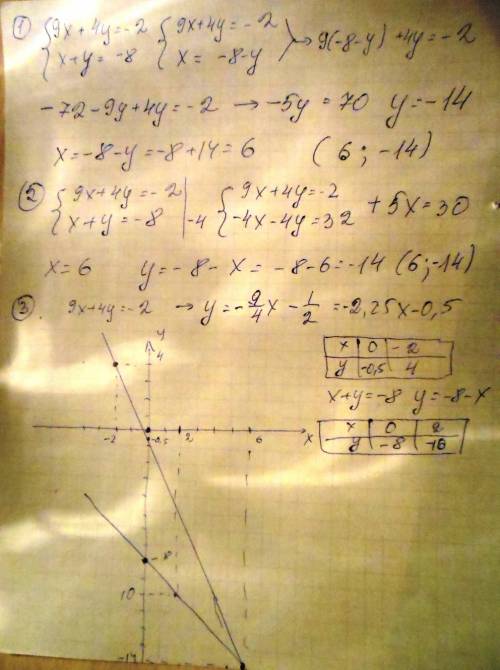 ① { 9x + 4y = -2 { 9x + 4y = -2 → 9(-8-y) + 4y = -2
x + y = -8 x = -8-y
-72 - 9y + 4y = -2 → -5y = 70 y = -14
x = -8 - y = -8 + 14 = 6 (6; -14)
② { 9x + 4y = -2 | { 9x + 4y = -2 + 5x = 30
x + y = -8 | -4 -4x - 4y = 32
x = 6 y = -8 - x = -8 - 6 = -14 (6; -14)
③. 9x + 4y = -2 → y = -9/4 x - 1/2 = -2,25x - 0,5
x | 0 | -2
y | -0,5 | 4
x + y = -8 y = -8 - x
x | 0 | 2
y | -8 | -10
y
4
-2 -0,5 2 6 x
-8
10
-14